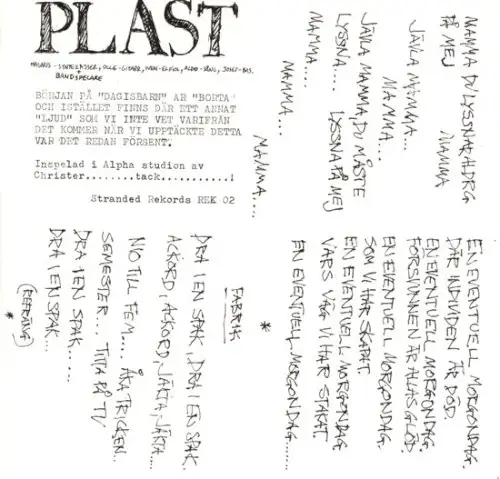 PLAST
MAGNUS - SYNTE, BASSER, OLLE - GITARR, IVAN - ELFIOL, ALDO - SÅNG, JOSEF - BAS.
+
BANDSPELARE
BÖRJAN PÅ "DAGISBARN" AR "BORTA"
OCH ISTÄLLET FINNS DÄR ETT ANNAT
"LJUD" SOM VI INTE VET VARIFRÅN
DET KOMMER NÄR VI UPPTÄCKTE DETTA
VAR DET REDAN FÖRSENT.
Inspelad i Alpha studion av
Christer........tack..........!
Stranded Rekords REK 02
MAMMA DU LYSSNAR ALDRIG
PÅ MEJ MAMMA
JÄVLA MAMMA...
MAMMA....
JÄVLA MAMMA, DU MÅSTE
LYSSNA.... LYSSNA PÅ MEJ
MAMMA....
MAMMA....
MAMMA....
EN EVENTUELL MORGONDAG.
DÄR INDIVIDEN ÄR DÖD.
EN EVENTUELL MORGONDAG.
FÖRSVUNNEN ÄR ALLAS GLÖD.
EN EVENTUELL MORGONDAG.
SOM VI HAR SKAPAT.
EN EVENTUELL MORGONDAG.
VARS VÄG VI HAR STAKAT.
*
EN EVENTUELL MORGONDAG......
FABRIK
DRA I EN SPAK, DRA I EN SPAK.
ACKORD, ACKORD, JÄKTA, JÄKTA...
NIO TILL FEM... ÅKA TRICKEN..
SEMESTER... TITTA PÅ TV
DRA I EN SPAK...
DRA I EN SPAK......
(REFRÄNG)
*